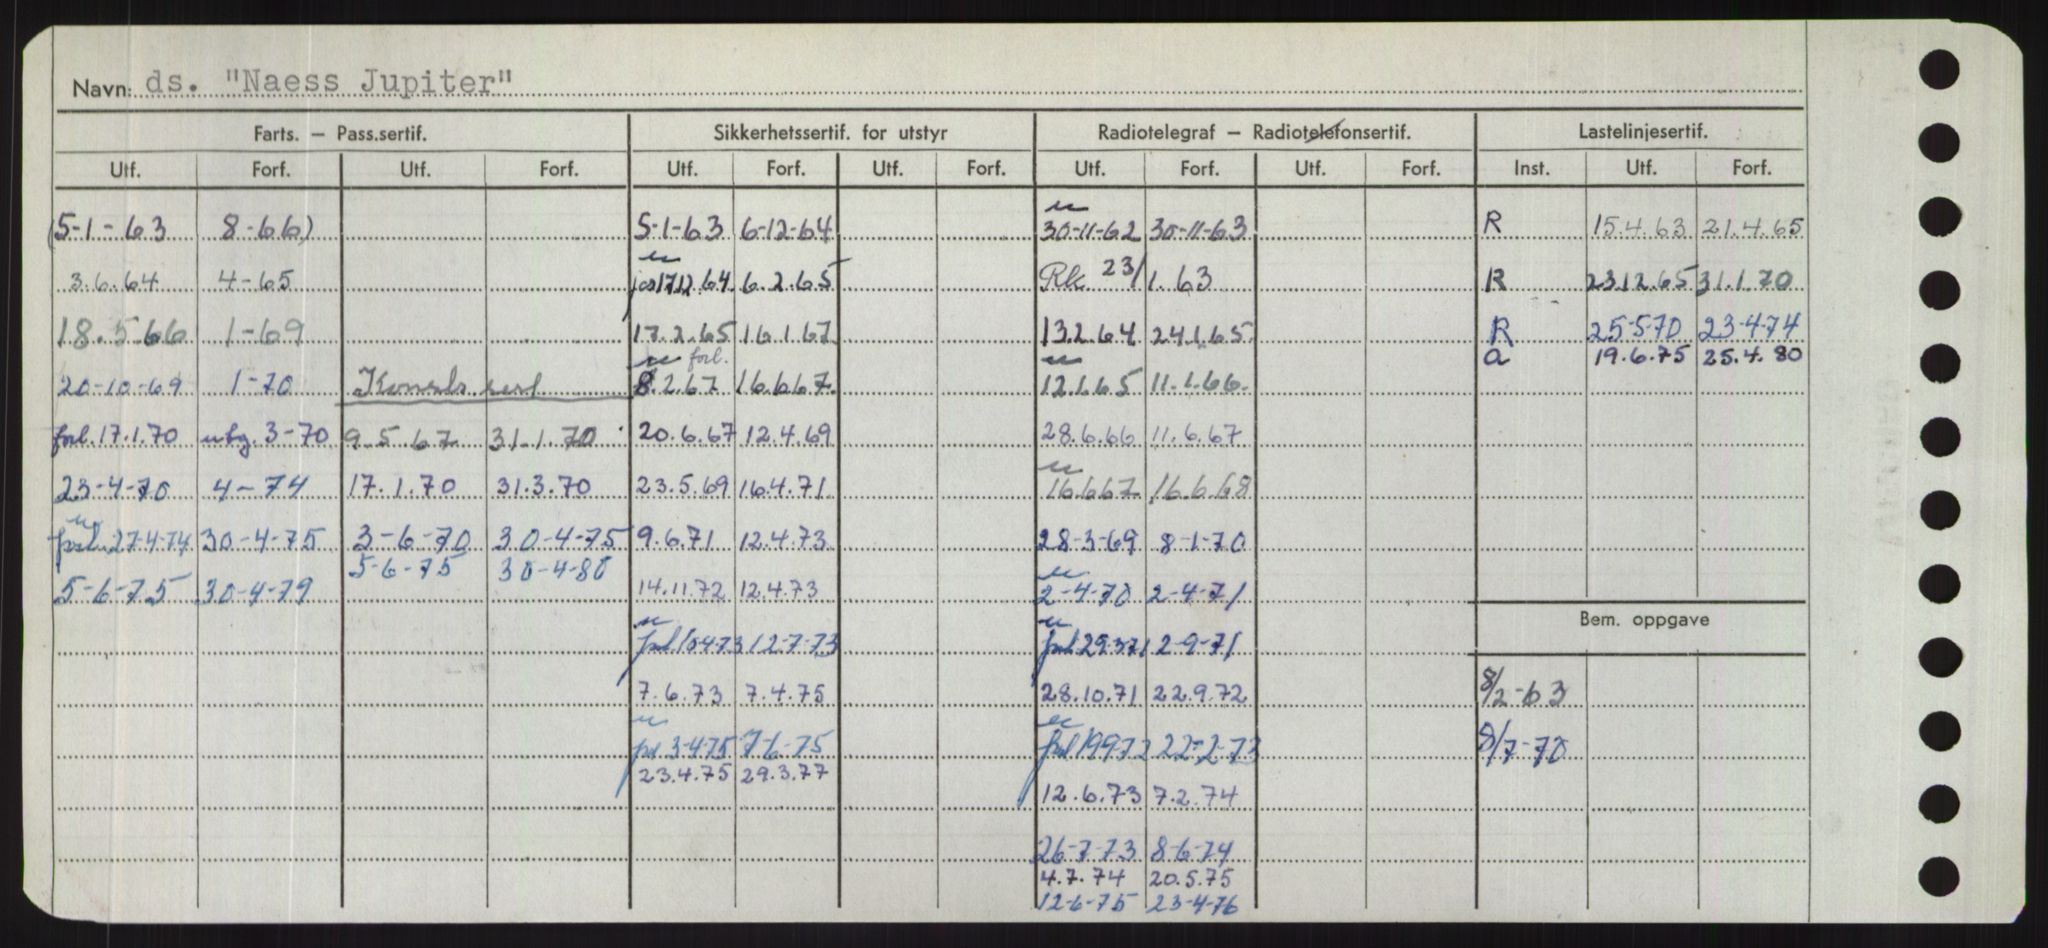 Navn: ds. "Naess Jupiter"
Farts. – Pass.sertif. Sikkerhetssertif. for utstyr Radiotelegraf – Radiotelefonsertif. Lastelinjesertif.
Utf. Forf. Utf. Forf. Utf. Forf. Utf. Forf. Utf. Forf. Utf. Forf. Inst. Utf. Forf.
(5-1-63 8-66) 5-1-63 6-12-64 30-11-62 30-11-63 R 15.4.63 21.4.65
3.6.64 4-65 17.12.64 6.2.65 Rk 23/1.63 R 23.12.65 31.1.70
18.5.66 1-69 17.2.65 16.1.67 13.2.64 24.1.65 R 25-5-70 23-4-74
a 19.6.75 25.4.80
forl.
20-10-69 1-70 8.2.67 16.6.67 12.1.65 11.1.66
forl. 17.1.70 utg. 3-70 9.5.67 31.1.70 20.6.67 12.4.69 28.6.66 11.6.67
23-4-70 4-74 17.1.70 31.3.70 23.5.69 16.4.71 16.6.67 16.6.68
forl. 27-4-74 30-4-75 3-6-70 30-4-75 9.6.71 12.4.73 28-3-69 8-1-70
5-6-75 30-4-80
5-6-75 30-4-79 14.11.72 12.4.73 2-4-70 2-4-71
Bem. oppgave
forl 10-4-73 12-7-73 forl 29.3.71 2-9-71
7.6.73 7.4.75 28.10.71 22.9.72 8/2-63
forl 3-4-75 7-6-75 forl 19.9.72 22-2-73 8/7-70
23.4.75 29.3.77
12.6.73 7.2.74
26-7-73 8-6-74
4.7.74 20.5.75
12-6-75 23-4-76